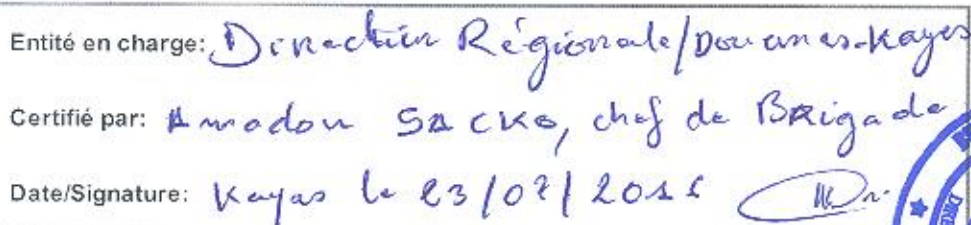 Entité en charge: Direction Régionale/Douanes-Kayes
Certifié par: Amadou SACKO, chef de BRigade
Date/Signature: Kayes le